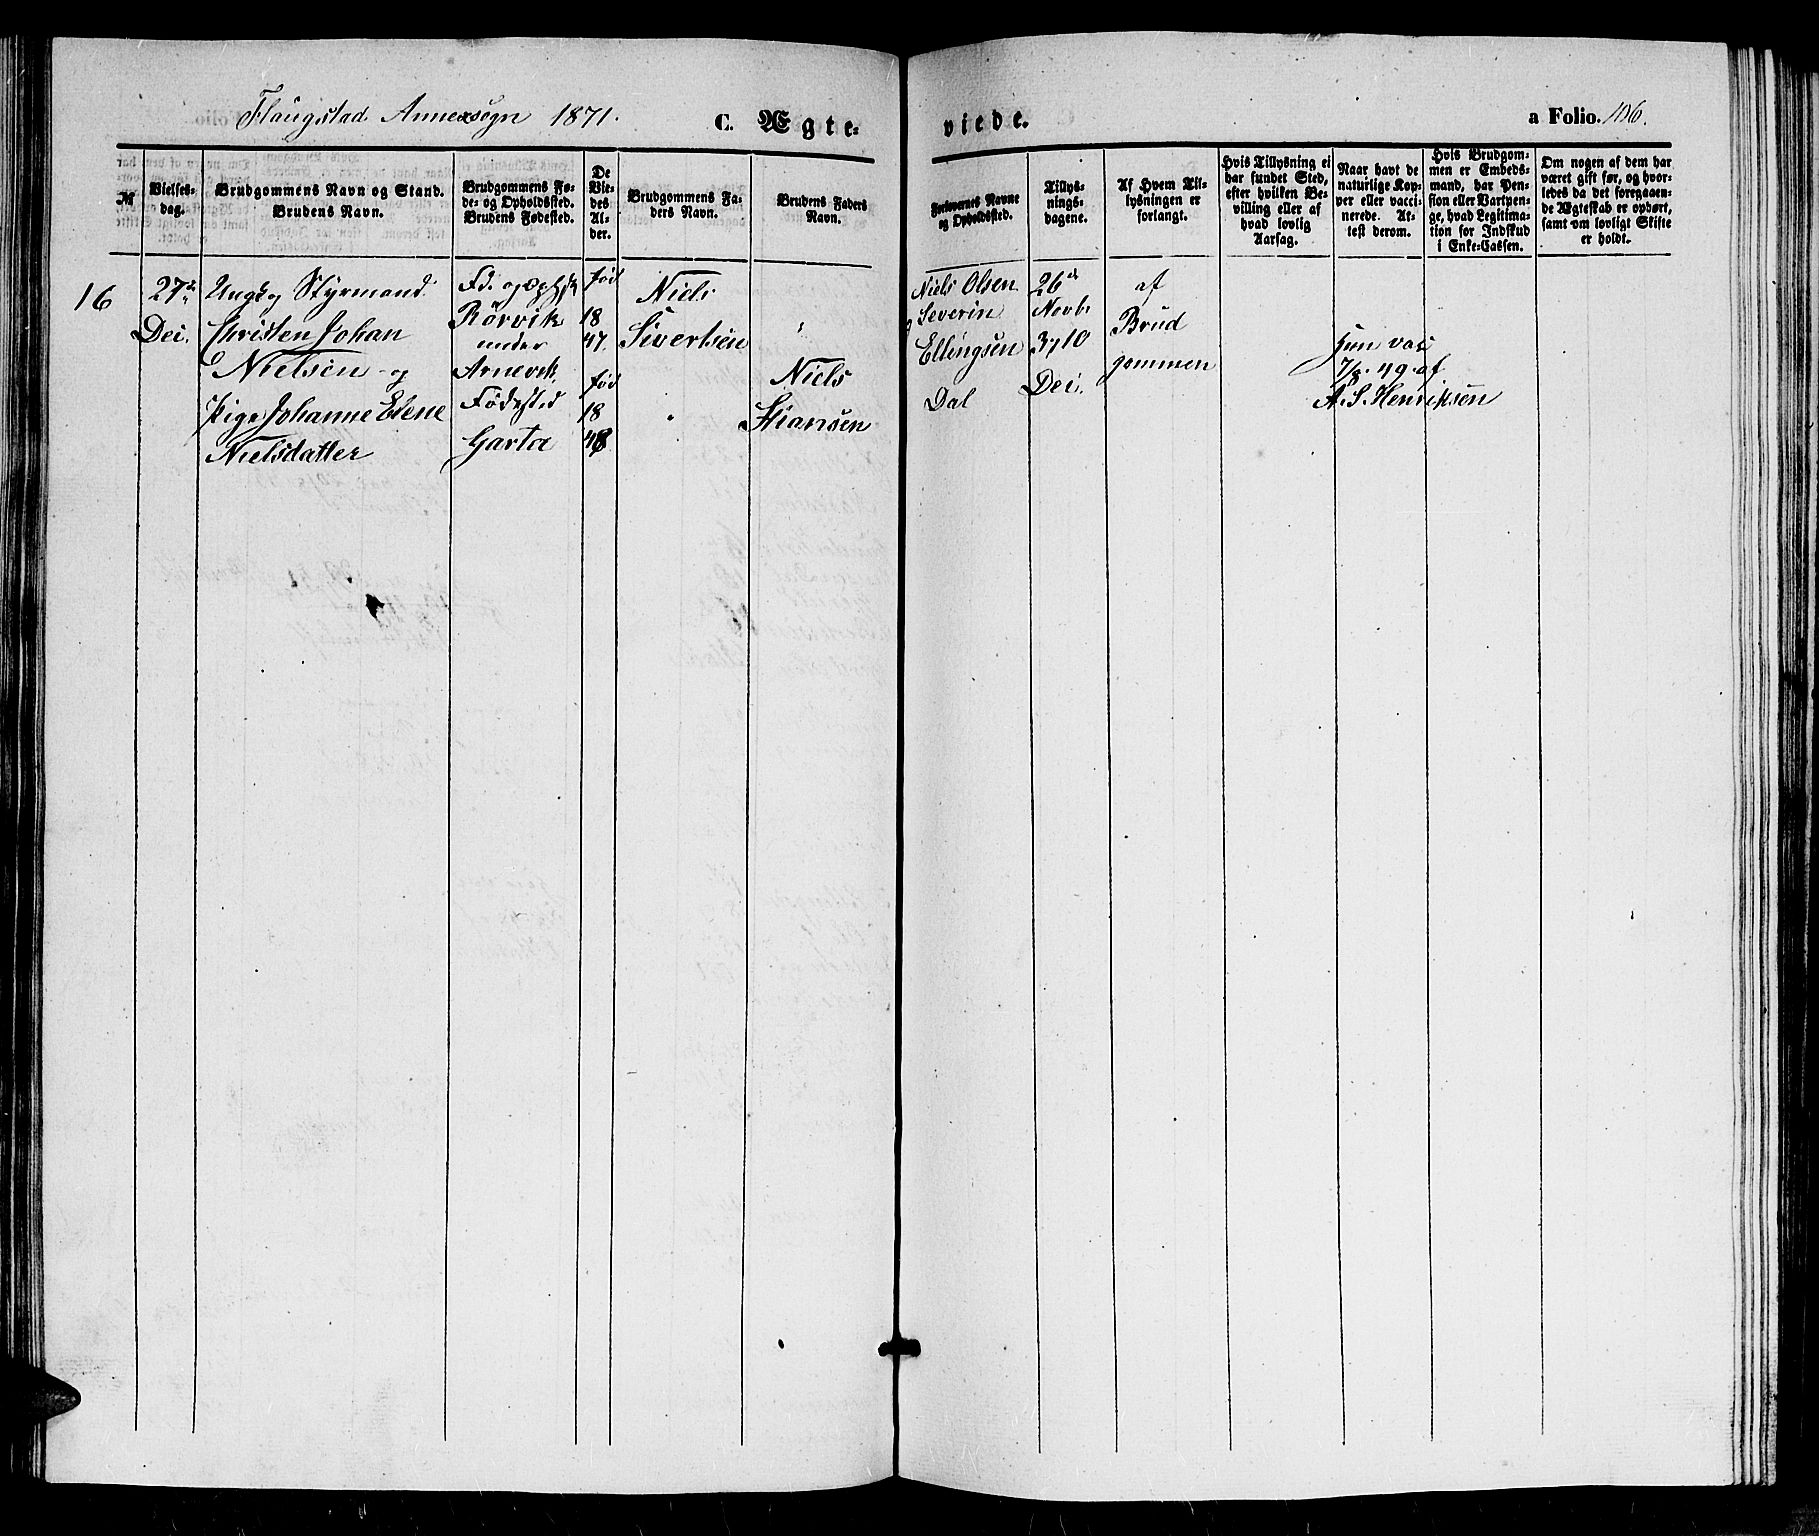 Flaugstad Annexsogn 1871.
C. Ægte-
viede.
a Folio. 106.
№
Vielses-
dag.
Brudgommens Navn og Stand.
Brudens Navn.
Brudgommens Fø-
de- og Opholdssted.
Brudens Fødested.
De
Vie-
des
Al-
der.
Brudgommens Fa-
ders Navn.
Brudens Faders
Navn.
Forlovernes Navne
og Opholdssted.
Tillys-
nings-
dagene.
Af Hvem Til-
lysningen er
forlangt.
Hvis Tillysning ei
har fundet Sted,
efter hvilken Be-
villing eller af
hvad lovlig
Aarsag.
Naar havt de
naturlige Kop-
per eller vacci-
nerede. At-
test derom.
Hvis Brudgom-
men er Embeds-
mand, har Pen-
sion eller Vartpen-
ge, hvad Legitima-
tion for Indskud
i Enke-Cassen.
Om nogen af dem har
været gift før, og hvor-
ledes da det foregaaen-
de Ægteskab er ophørt,
samt om lovligt Skifte
er holdt.
16
27de
Dei.
Ungk og Styrmand
Christen Johan
Nielsen og
Pige Johanne Elene
Nielsdatter
Fd. og Ophst
Rörvik
under
Arnevik.
Födested
Garta
fød
18
47.
fød
18
48
Niels
Sivertsen
"
"
Niels
Stiansen
Niels Olsen
Severin
Ellingsen
Dal
26de
Novbr
3, 10
Dei.
af
Brud
gommen
hun vac.
7/8. 49 af
A. S. Henriksen